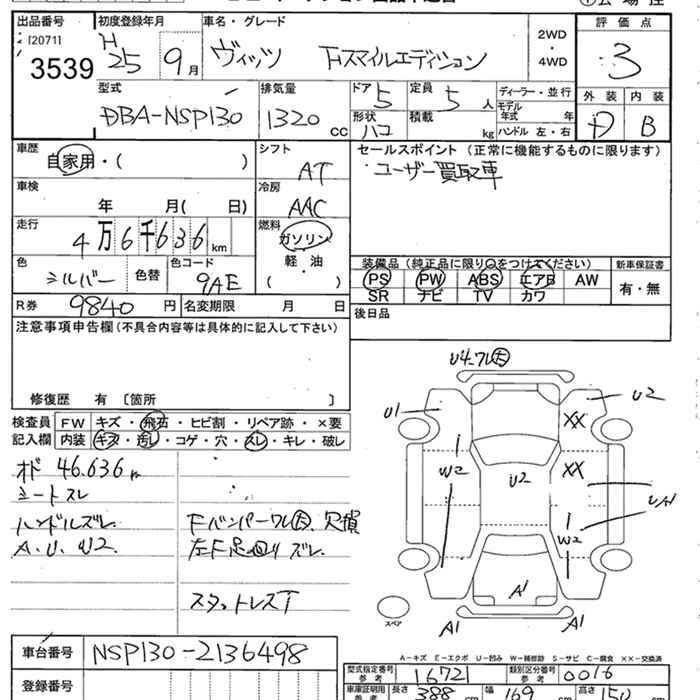 出品番号 初度登録年月 車名・グレード 評価点
[2071]
3539 H25 9月 ヴィッツ Fスマイルエディション 2WD・4WD 3
型式 排気量 ドア 5 定員 5人 ディーラー・並行 外装 内装
DBA-NSP130 1320cc 形状 ハコ 積載 kg モデル年式 年 D B
ハンドル 左・右
車歴 自家用・( ) シフト AT セールスポイント(正常に機能するものに限ります)
・ユーザー買取車
車検 年 月( 日) 冷房 AAC
走行 4万6千636km 燃料 ガソリン
軽・油
( )
色 シルバー 色替 色コード 9AE
装備品(純正品に限り○をつけてください) 新車保証書
PS PW ABS エアB AW 有・無
SR ナビ TV カワ
R券 9840円 名変期限 月 日 後日品
注意事項申告欄(不具合内容等は具体的に記入して下さい)
修復歴 有 〔箇所 〕
検査員 FW キズ・飛石・ヒビ割・リペア跡・×要
記入欄 内装 キズ・汚し・コゲ・穴・スレ・キレ・破レ
オド 46.636km
シートスレ
ハンドルズレ Fバンパーワレ大 欠損
A.U.W2. 左F足回りズレ
スタットレスT
U4-ワレ大
U1 U2
XX
W2 U2 XX
UA1
W2
A1
スペア A1 A1
A-キズ E-エクボ U-凹み W-補修跡 S-サビ C-腐食 XX-交換済
車台番号 NSP130-2136498
登録番号
型式指定番号 参考 1672 類別区分番号 参考 0016
車庫証明用 参考 長さ 388cm 幅 169cm 高さ 150cm